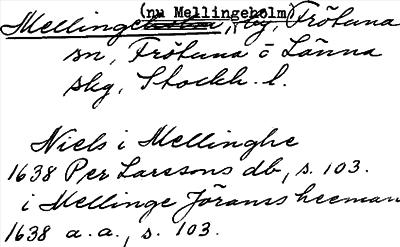 (nu Mellingeholm)
Mellinge, tg, Frötuna
sn, Frötuna o Länna
skg, Stockh. l.
Niels i Mellinghe
1638 Per Larssons db, s. 103.
i Mellinge Jöranss heeman
1638 a.a., s. 103.